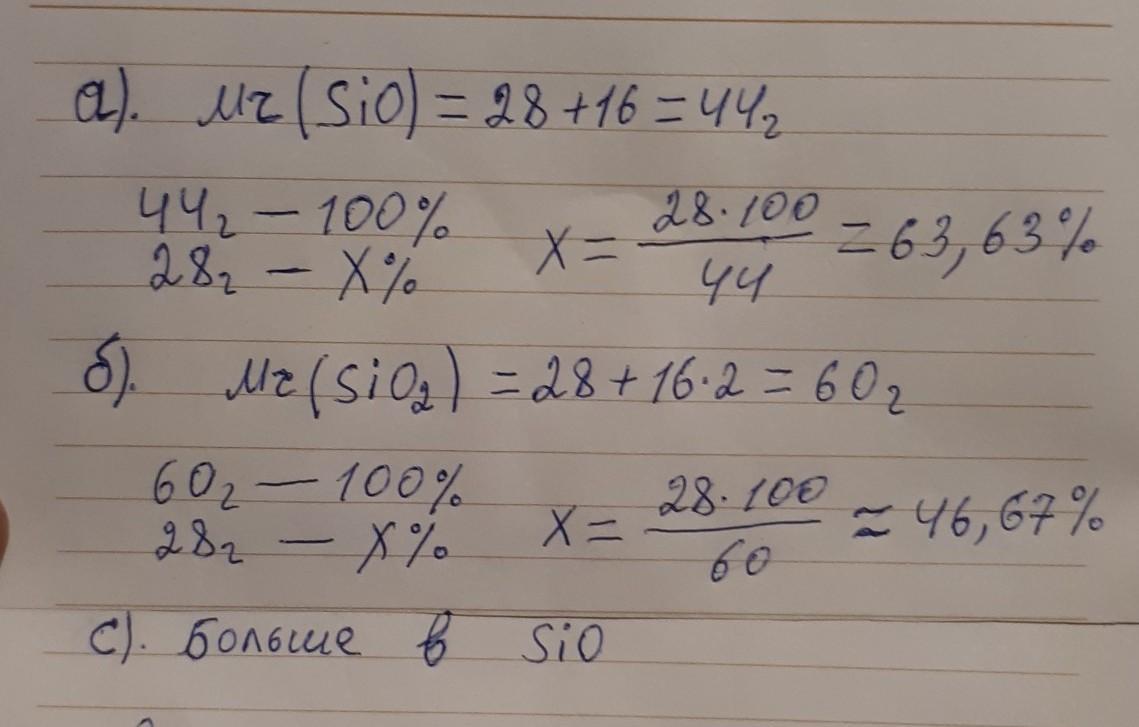 а). Mr(SiO) = 28 + 16 = 44г
44г — 100%
28г — X%
X = 28·100 / 44 = 63,63%
б). Mr(SiO2) = 28 + 16·2 = 60г
60г — 100%
28г — X%
X = 28·100 / 60 ≈ 46,67%
с). Больше в SiO